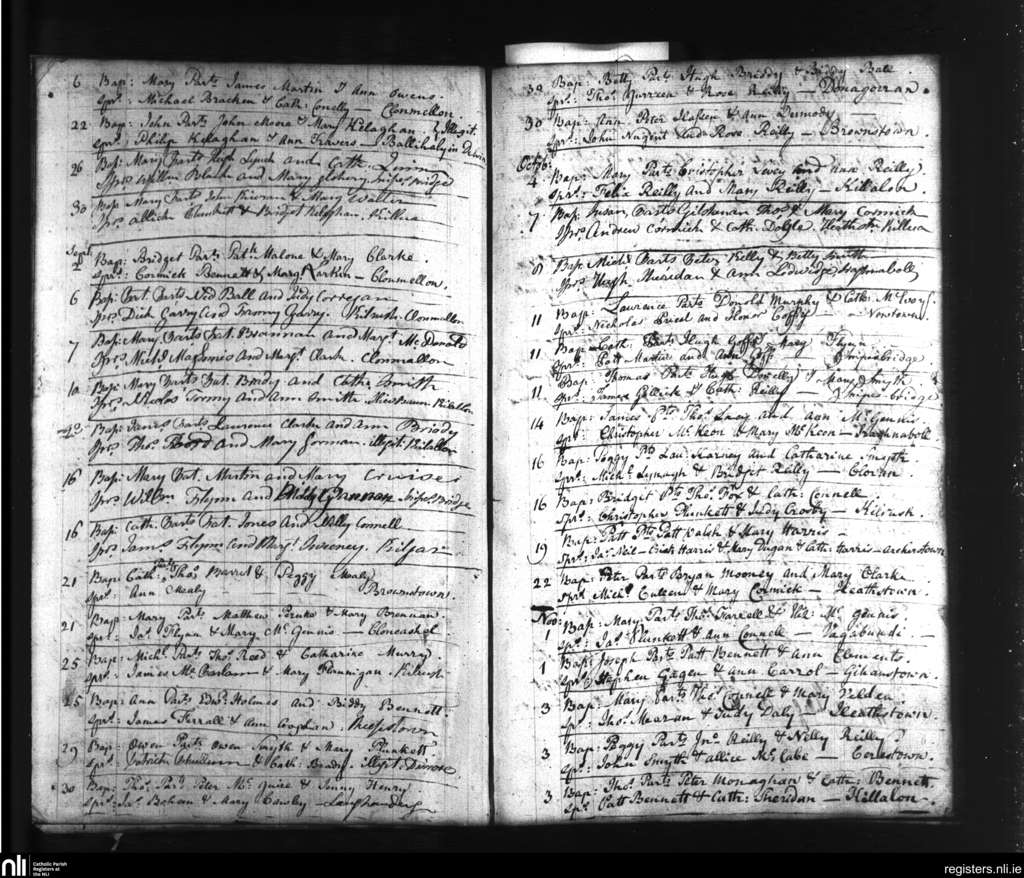 6 Bap: Mary Parts James Martin & Ann Owens.
Sprs: Michael Bracken & Cath: Conelly — Clonmellon
22 Bap: John Parts John Moore & Mary Kelaghan Illegit.
Sprs: Philip Kelaghan & Ann Travers — Ballihaly in
26 Bap: Mary Parts Hugh Lynch and Cath: Quinn
Sprs William and Mary Snipes bridge
30 Bap Mary Parts John Kiernan & Mary Walter
Sprs Allick Plunkett & Bridget Keleghan. Killua
Sept.
2 Bap: Bridget Parts Patk Malone & Mary Clarke.
Sprs: Cormick Bennett & Mary Larkin — Clonmellon.
6 Bap: Pat. Parts Ned Ball and Judy Corregan
Sprs Dick Garry and Garry. Clonmellon
7 Bap: Mary, Parts Pat. Brannan and Margt. McDonald
Sprs Michl and Margt Clark. Clonmellon
10 Bap: Mary Parts Pat. Briody and Cath: Smith
Sprs Nicolas and Ann Smith. Killallon
13 Bap: James Parts Laurence Clark and Ann Briody
Sprs Thos. and Mary Gorman. illegit. Kilallon
16 Bap: Mary Pat. Martin and Mary Cruises
Sprs Willm Flynn and Brennan Snipes Bridge
16 Bap: Cath. Parts Pat. Jones and Nelly Connell
Sprs James Flynn and Margt Sweeney. Kilgar
21 Bap: Cath: Parts Thos Barret & Peggy Mealy
Sprs: Ann Mealy — Brownstown.
21 Bap: Mary Parts Matthew & Mary Brennan
Sprs: Jas Flynn & Mary McGennis — Cloncashel
25 Bap: Michl Parts Thos Reed & Catharine Murry.
Sprs: James McParlan & Mary Flannigan Kilrush
25 Bap: Ann Parts Edwd Holmes and Biddy Bennett.
Sprs: James Farrall & Ann Reefstown
29 Bap: Owen Parts Owen Smyth & Mary Plunkett
Sprs: Patrick & Cath: Brady. illegit. Dimrose
30 Bap: Thos Parts Peter McGuire & Jenny Henry
Sprs: Jas Behan & Mary Cawley —
30 Bap: Betty Parts Hugh Briody & Biddy Ball.
Sprs: Thos & Rose Reilly — Donagoeran
30 Bap: Ann Peter & Ann Dermody
Sprs: John Nugent and Rose Reilly — Brownstown.
Octbr:
4 Bap: Mary Parts Cristopher Levey and Ann Reilly.
Sprs: Felix Reilly and Mary Reilly — Killalon.
7 Bap: Susan, Parts Thos & Mary Cormick
Sprs Andrew Cormick & Cath: Doyle. Heathstn Killua
8 Bap Michl Parts Peter Kelly & Betty Smith
Sprs Hugh Sheridan & Ann
11 Bap: Laurence Parts Donold Murphy & Cath: McEvoy.
Sprs: Nicholas Priest and Honor Coffy — Newtown.
11 Bap: Cath: Parts Hugh Goff & Mary Flynn
Sprs: Patt Martin and Ann Goff — Snipesbridge
11 Bap: Thomas Parts Hugh Donelly & Mary Smyth
Sprs: James Gellick & Cath: Reilly — Snipes bridge.
14 Bap: James Pts Thos Lacy and Ann McGennis.
Sprs: Christopher McKeon & Mary McKeon — Rathnaboll
16 Bap: Peggy Pts Lau: Kearney and Catharine Smyth.
Sprs: Michl Lynaugh & Bridget Reilly — Cloran
16 Bap: Bridget Pts Thos Fox & Cath: Connell
Sprs: Christopher Plunkett & Judy Crosby — Kilrush.
19 Bap: Patt Pts Patt Walsh & Mary Harris —
Sprs: Jas Neil — Harris & Mary Dugan & Cath: Harris — Archerstown
22 Bap: Peter Parts Bryan Mooney and Mary Clarke
Sprs: Michl & Mary Cormick — Heathstown.
Nov:
1 Bap: Mary Parts Thos Farrell & McGennis.
Sprs: Jas Plunkett & Ann Connell — Vagabundi —
1 Bap: Joseph Parts Patt Bennett & Ann Clements.
Sprs: Stephen Gagen & Ann Carrol — Gihanstown.
3 Bap: Mary Parts Thos Connell & Mary Velden
Sprs: Thos Moran & Judy Daly — Heathstown.
3 Bap: Peggy Parts Jno Reilly & Nelly Reilly
Sprs: John Smyth & Allice McCabe — Eorlestown.
3 Bap: Thos Parts Peter Monaghan & Cath: Bennett
Sprs: Patt Bennett & Cath: Sheridan — Killalon.
nli
Catholic Parish
Registers at
the NLI
registers.nli.ie